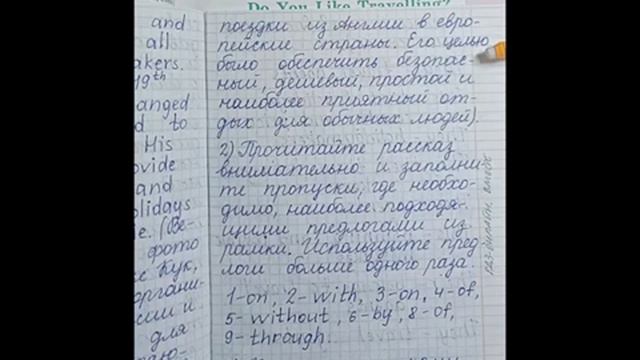 Do You Like Travelling?
and
all
akers.
19th
anged
d to
His
ovide
and
olidays
e. (Ве-
фото
к Кук,
органи-
сии и
для
поездки из Англии в евро-
пейские страны. Его целью
было обеспечить безопас-
ный, дешевый, простой и
наиболее приятный от-
дых для обычных людей).
2) Прочитайте рассказ
внимательно и заполни-
те пропуски, где необхо-
димо, наиболее подходя-
щими предлогами из
рамки. Используйте пред
логи больше одного раза.
1-on, 2-with, 3-on, 4-of,
5-without, 6-by, 8-of,
9-through.